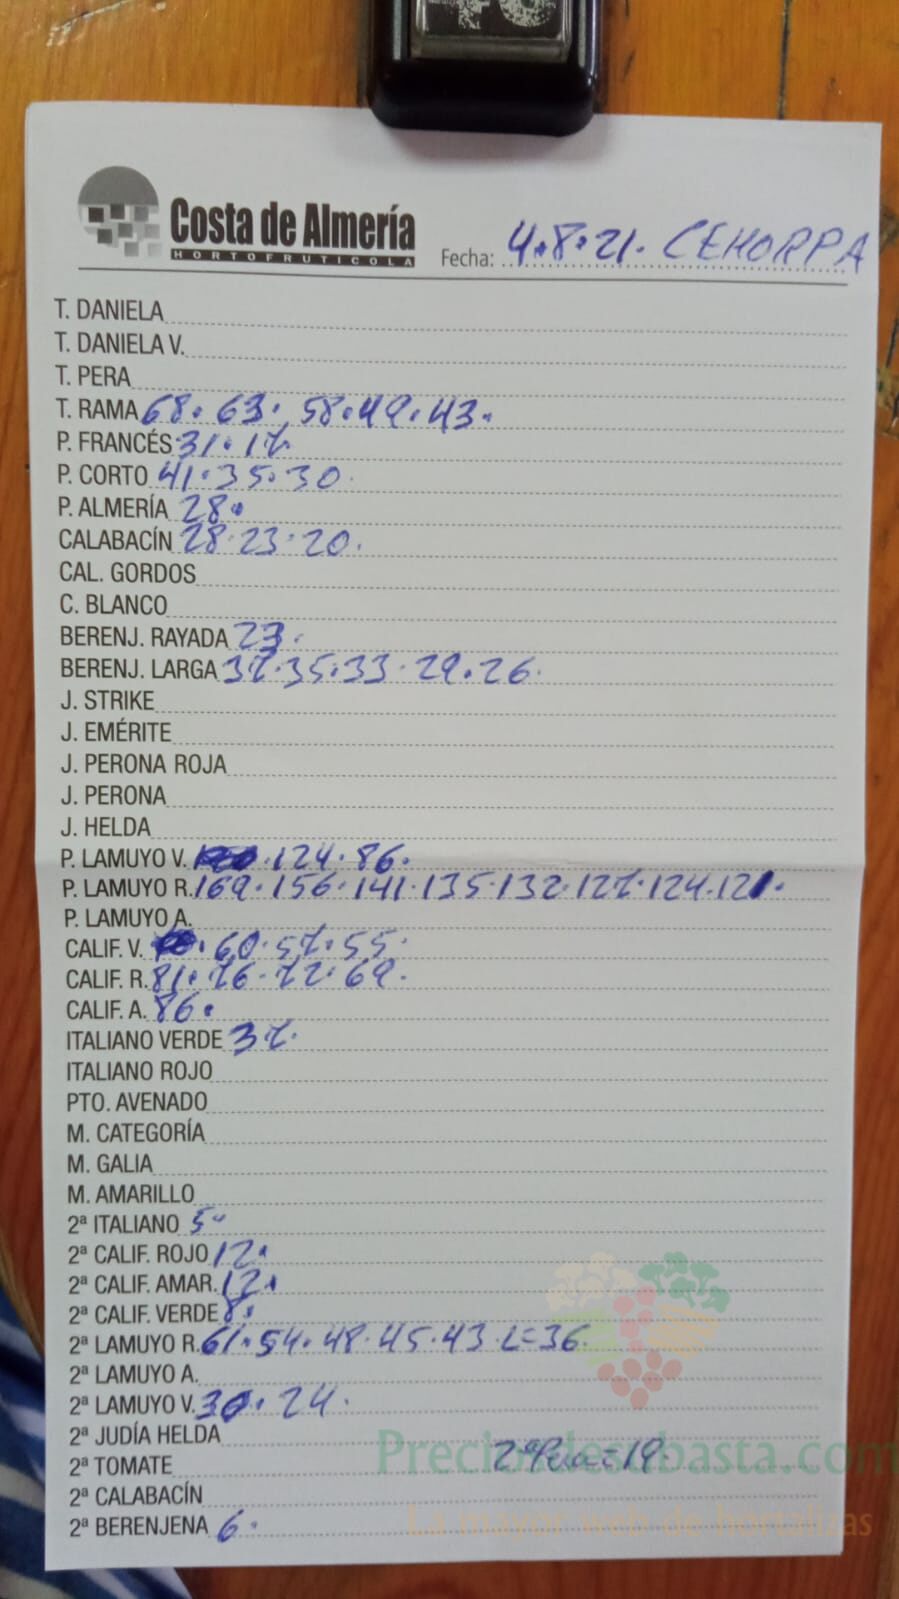 Costa de Almería
HORTOFRUTICOLA
Fecha: 4.8.21. CEHORPA
T. DANIELA
T. DANIELA V.
T. PERA
T. RAMA 68. 63. 58. 49. 43.
P. FRANCÉS 31. 17.
P. CORTO 41. 35. 30.
P. ALMERÍA 28.
CALABACÍN 28. 23. 20.
CAL. GORDOS
C. BLANCO
BERENJ. RAYADA 23.
BERENJ. LARGA 37. 35. 33. 29. 26.
J. STRIKE
J. EMÉRITE
J. PERONA ROJA
J. PERONA
J. HELDA
P. LAMUYO V. . 124. 86.
P. LAMUYO R. 169. 156. 141. 135. 132. 127. 124. 121.
P. LAMUYO A.
CALIF. V. . 60. 57. 55.
CALIF. R. 81. 76. 72. 69.
CALIF. A. 86.
ITALIANO VERDE 37.
ITALIANO ROJO
PTO. AVENADO
M. CATEGORÍA
M. GALIA
M. AMARILLO
2ª ITALIANO 5.
2ª CALIF. ROJO 12.
2ª CALIF. AMAR. 12.
2ª CALIF. VERDE 8.
2ª LAMUYO R. 61. 54. 48. 45. 43. L=36.
2ª LAMUYO A.
2ª LAMUYO V. 30. 24.
2ª JUDÍA HELDA
Preciosdesubasta.com
2ª TOMATE 2ª Pera=19.
2ª CALABACÍN
La mayor web de hortalizas
2ª BERENJENA 6.